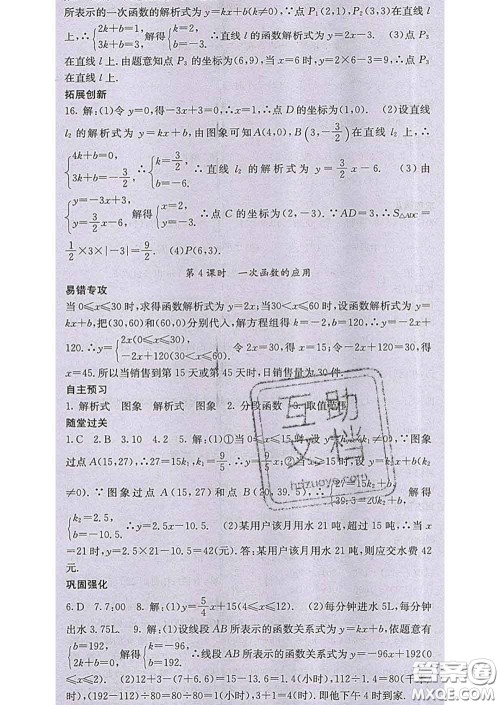 所表示的一次函数的解析式为 y=kx+b(k≠0),∵点 P₁(2,1),P₂(3,3)在直线 l
上,∴{2k+b=1, 3k+b=3, 解得{k=2, b=-3. ∴直线 l 的函数解析式为 y=2x-3. (3)点 P₃
在直线 l 上.由题意知点 P₃ 的坐标为(6,9),当 x=6 时,y=2×6-3=9,∴点 P₃
在直线 l 上.
拓展创新
16. 解:(1)令 y=0,得-3x+3=0,∴x=1,∴点 D 的坐标为(1,0). (2)设直线
l₂ 的解析式为 y=kx+b,由图象可知 A(4,0),B(3,-3/2)在直线 l₂ 上,∴
{4k+b=0, 3k+b=-3/2, ∴{k=3/2, b=-6. ∴直线 l₂ 的解析式为 y=3/2x-6. (3)由
{y=-3x+3, y=3/2x-6, 解得{x=2, y=-3. ∴点 C 的坐标为(2,-3). ∵AD=3,∴S△ADC=
1/2×3×|-3|=9/2. (4)P(6,3).
第 4 课时 一次函数的应用
易错专攻
当 0≤x≤30 时,求得函数解析式为 y=2x;当 30<x≤60 时,设函数解析式为 y=
kx+b,把(30,60)和(60,0)分别代入,解方程组得 k=-2,b=120,∴y=-2x+
120.∴y={2x(0≤x≤30), -2x+120(30<x≤60). 令 2x=30,得 x=15;令-2x+120=30,得
x=45.所以当销售到第 15 天或第 45 天时,日销售量为 30 件.
自主预习
1. 解析式 图象 解析式 图象 2. 分段函数 3. 取值范围
随堂过关
1. C 2. B 3. 10 4. 2 5. 解:(1)①当 0≤x≤15 时,设 y=k₁x(k₁≠0).∵图象
过点 A(15,27),∴27=15k₁,k₁=9/5.∴y=9/5x;②当 x≥15 时,设 y=k₂x+b(k₂
≠0).∵图象过点 A(15,27)和点 B(20,39.5),∴{27=15k₂+b, 39.5=20k₂+b, 解得
{k₂=2.5, b=-10.5. ∴y=2.5x-10.5. (2)某用户该月用水 21 吨,超过 15 吨,∴当 x
=21 时,y=2.5×21-10.5=42(元).答:某用户该月用水 21 吨,则应交水费 42
元.
巩固强化
6. D 7. 7:00 8. 解:(1)y=5/4x+15(4≤x≤12). (2)每分钟进水 5L,每分钟
出水 3.75L. 9. 解:(1)设线段 AB 所表示的函数关系式为 y=kx+b,依题意有
{b=192, 2k+b=0, 解得{k=-96, b=192. ∴线段 AB 所表示的函数关系式为 y=-96x+192(0
≤x≤2). (2)12+3-(7+6.6)=15-13.6=1.4(小时),112÷1.4=80(千米/
时),(192-112)÷80=80÷80=1(小时),3+1=4(时). 即他下午 4 时到家.
互助
文档
答案圈
MXQE.COM